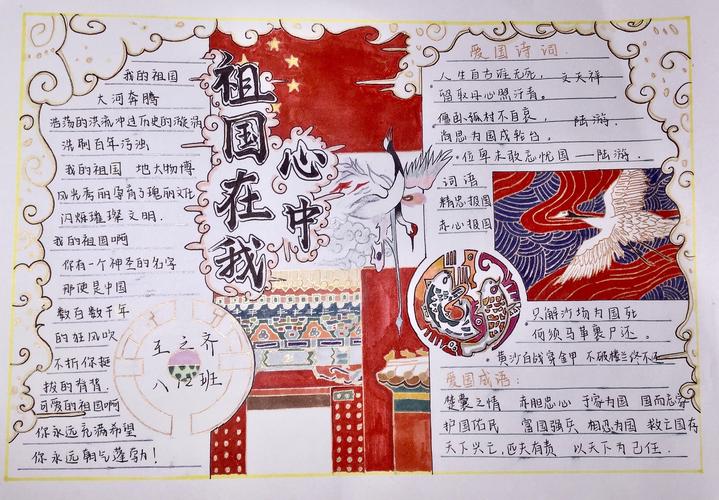 祖国在我
心中
我的祖国
大河奔腾
浩荡的洪流冲过历史的漩涡
洗刷百年污浊
我的祖国 地大物博
风光秀丽孕育了瑰丽文化
闪烁璀璨文明.
我的祖国啊
你有一个神圣的名字
那便是中国
数百数千年
的狂风吹
不折你挺
拔的脊背
可爱的祖国啊
你永远充满希望
你永远朝气蓬勃!
王之齐
八12班
爱国诗词
人生自古谁无死, 文天祥
留取丹心照汗青。
僵卧孤村不自哀, 陆游.
尚思为国戍轮台。
位卑未敢忘忧国——陆游.
词语
精忠报国
赤心报国
只解沙场为国死
何须马革裹尸还。
黄沙百战穿金甲 不破楼兰终不还
爱国成语:
楚囊之情 赤胆忠心 于家为国 国而忘家
护国佑民 富国强兵 相忍为国 救亡图存
天下兴亡,匹夫有责 以天下为己任.